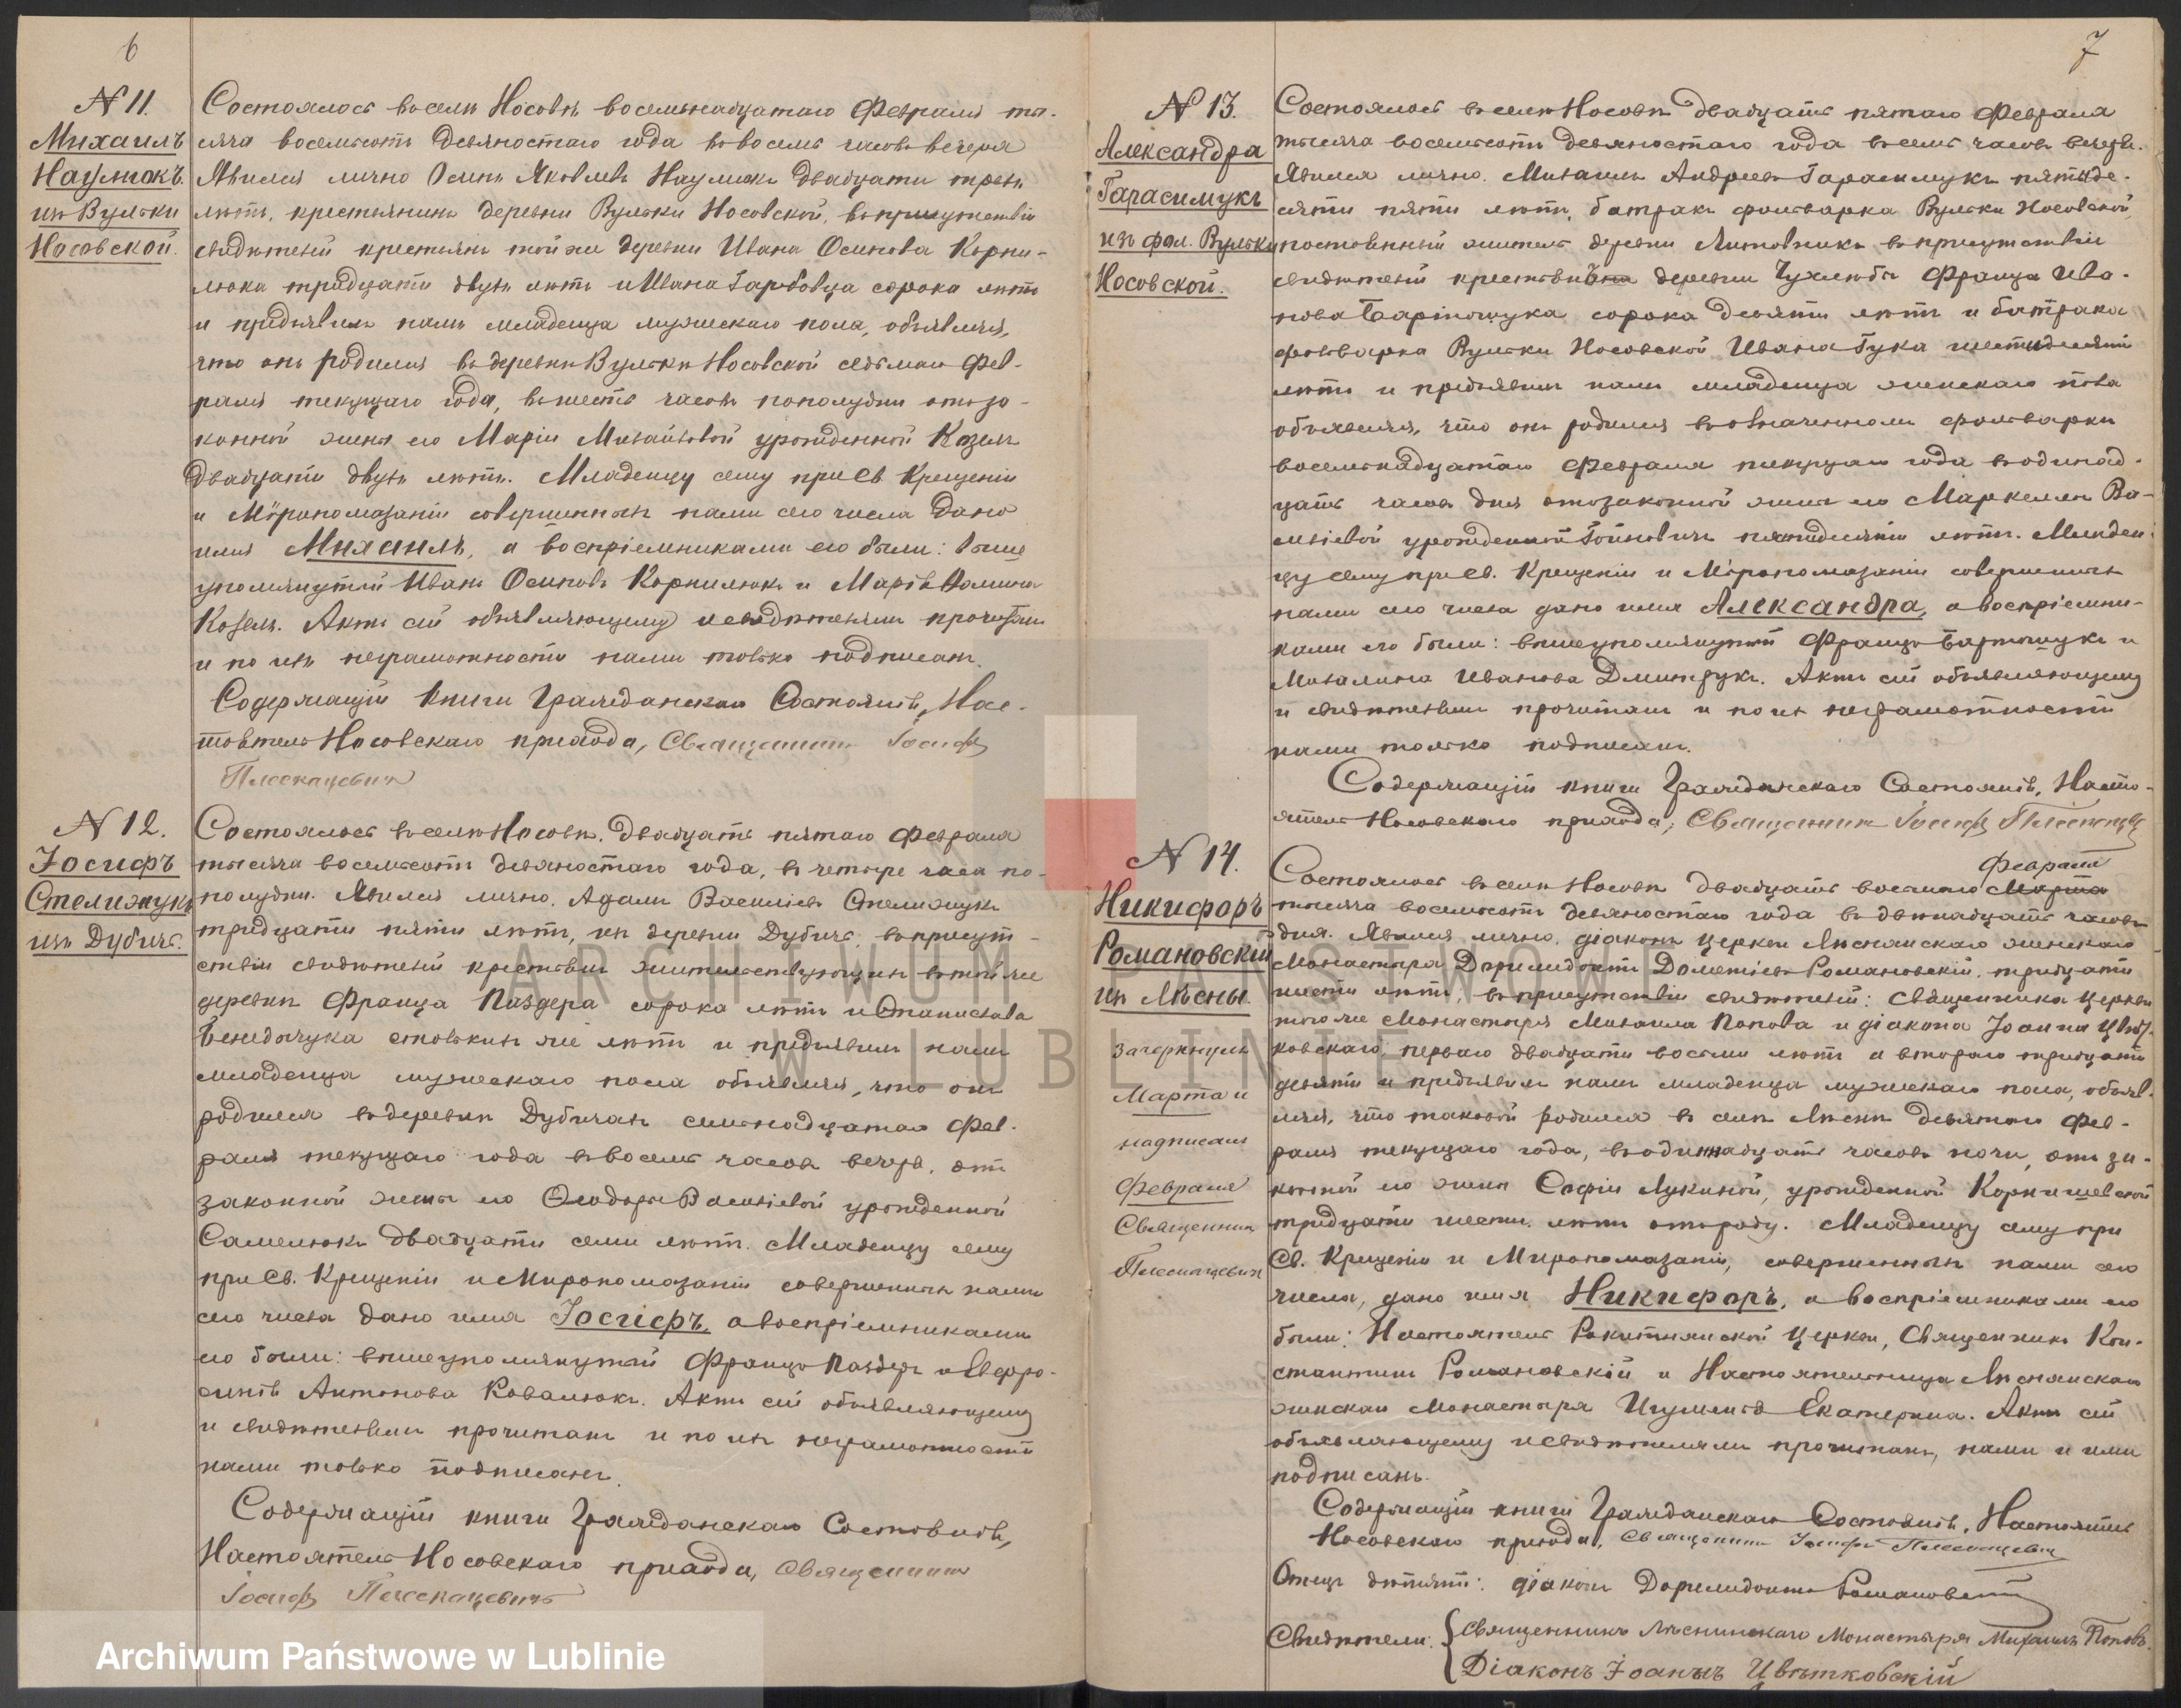 6
N 11.
Михаилъ
Наумюкъ
изъ Вульки
Носовской.
Состоялось въ селѣ Носовѣ восемьнадцатаго Февраля ты-
сяча восемьсотъ девяностаго года въ восемь часовъ вечера
Явился лично Осипъ Яковлевъ Наумюкъ двадцати трехъ
лѣтъ, крестьянинъ деревни Вульки Носовской, въ присутствіи
свидѣтелей крестьянъ той же деревни Ивана Осипова Корни-
люка тридцати двухъ лѣтъ и Ивана Гарбовца сорока лѣтъ
и предъявилъ намъ младенца мужескаго пола, объявляя,
что онъ родился въ деревнѣ Вулькѣ Носовской седьмаго Фев-
раля текущаго года, въ шесть часовъ пополудни отъ за-
конной жены его Маріи Михайловой урожденной Козелъ
двадцати двухъ лѣтъ. Младенцу сему при Св. Крещеніи
и Мѵропомазаніи совершенныхъ нами сего числа дано
имя Михаилъ, а воспріемниками его были: выше
упомянутый Иванъ Осиповъ Корнилюкъ и Марія
Козелъ. Актъ сей объявляющему и свидѣтелямъ прочитанъ
и по ихъ неграмотности нами только подписанъ.
Содержащій книги Гражданскаго Состоянія, Нас-
тоятель Носовскаго прихода, Священникъ Іосифъ
N 12.
Іосифъ
Стелижукъ
изъ Дубичъ.
Состоялось въ селѣ Носовѣ. Двадцать пятаго Февраля
тысяча восемьсотъ девяностаго года, въ четыре часа по-
полудни. Явился лично. Адамъ Василіевъ Стелижукъ
тридцати пяти лѣтъ, изъ деревни Дубичъ, въ присут-
ствіи свидѣтелей крестьянъ жительствующихъ въ той же
деревнѣ Франца Паздера сорока лѣтъ и Станислава
столькихъ же лѣтъ и предъявилъ намъ
младенца мужескаго пола объявляя, что онъ
родился въ деревнѣ Дубичахъ семнадцатаго Фев-
раля текущаго года въ восемь часовъ вечера, отъ
законной жены его Ѳеодоры Василіевой урожденной
Самелюкъ двадцати семи лѣтъ. Младенцу сему
при Св. Крещеніи и Миропомазаніи совершенныхъ нами
сего числа дано имя Іосифъ, а воспріемниками
его были: вышеупомянутый Францъ Паздеръ и Евфро-
синія Антонова Ковалюкъ. Актъ сей объявляющему
и свидѣтелямъ прочитанъ и по ихъ неграмотности
нами только подписанъ.
Содержащій книги Гражданскаго Состоянія,
Настоятель Носовскаго прихода, Священникъ
Іосифъ
7
N 13.
Александра
Гарасимукъ
изъ фол. Вульки
Носовской.
Состоялось въ селѣ Носовѣ двадцать пятаго Февраля
тысяча восемьсотъ девяностаго года въ семь часовъ вечера.
Явился лично. Михаилъ Андреевъ Гарасимукъ пятиде-
сяти пяти лѣтъ, батракъ фольварка Вульки Носовской,
постоянный житель деревни Литовники въ присутствіи
свидѣтелей крестьянъ деревни Чухлебы Франца Ива-
нова Бартощука сорока девяти лѣтъ и батрака
фольварка Вульки Носовской Ивана Гука шестидесяти
лѣтъ и предъявилъ намъ младенца женскаго пола
объявляя, что онъ родился въ означенномъ фольваркѣ
восемьнадцатаго Февраля текущаго года въ одинад-
цать часовъ дня отъ законной жены его Маркеллы Ва-
силіевой урожденной Гойновичъ пятидесяти лѣтъ. Младен-
цу сему при Св. Крещеніи и Мѵропомазаніи совершенныхъ
нами сего числа дано имя Александра, а воспріемни-
ками его были: вышеупомянутый Францъ Бартощукъ и
Михалина Иванова Дмитрукъ. Актъ сей объявляющему
и свидѣтелямъ прочитанъ и по ихъ неграмотности
нами только подписанъ.
Содержащій книги Гражданскаго Состоянія, Насто-
ятель Носовскаго прихода, Священникъ Іосифъ
N 14.
Никифоръ
Романовскій
изъ Лѣсны.
Зачеркнулъ
Марта и
надписалъ
Февраля
Священникъ
Февраля
Состоялось въ селѣ Носовѣ двадцать восьмаго Марта
тысяча восемьсотъ девяностаго года въ двѣнадцать часовъ
дня. Явился лично. діаконъ церкви Лѣснянскаго женскаго
Монастыря Доримедонтъ Дометіевъ Романовскій. тридцати
шести лѣтъ, въ присутствіи свидѣтелей: Священника церкви
того же Монастыря Михаила Попова и діакона Іоанна Цвѣт-
ковскаго; перваго двадцати восьми лѣтъ а втораго тридцати
девяти и предъявилъ намъ младенца мужескаго пола, объяв-
ляя, что таковой родился въ селѣ Лѣснѣ девятаго Фев-
раля текущаго года, въ одиннадцать часовъ ночи, отъ за-
конной его жены Софіи Лукиной, урожденной Корнишевской
тридцати шести лѣтъ отъ роду. Младенцу сему при
Св. Крещеніи и Миропомазаніи, совершенныхъ нами сего
числа, дано имя Никифоръ, а воспріемниками его
были: Настоятель Рокитнянской церкви, Священникъ Кон-
стантинъ Романовскій и Настоятельница Лѣснянскаго
женскаго Монастыря Игуменія Екатерина. Актъ сей
объявляющему и свидѣтелямъ прочитанъ, нами и ими
подписанъ.
Содержащій книги Гражданскаго Состоянія, Настоятель
Носовскаго прихода, Священникъ Іосифъ
Отецъ дитяти: діаконъ Доримедонтъ Романовскій
Свидѣтели: Священникъ Лѣснинскаго Монастыря Михаилъ Поповъ.
Діаконъ Іоаннъ Цвѣтковскій
ARCHIWUM PAŃSTWOWE
W LUBLINIE
Archiwum Państwowe w Lublinie